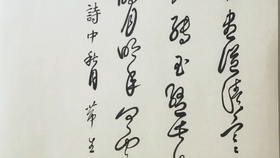 盡溢清寒
轉玉盤此
明月明年何處
詩中秋月